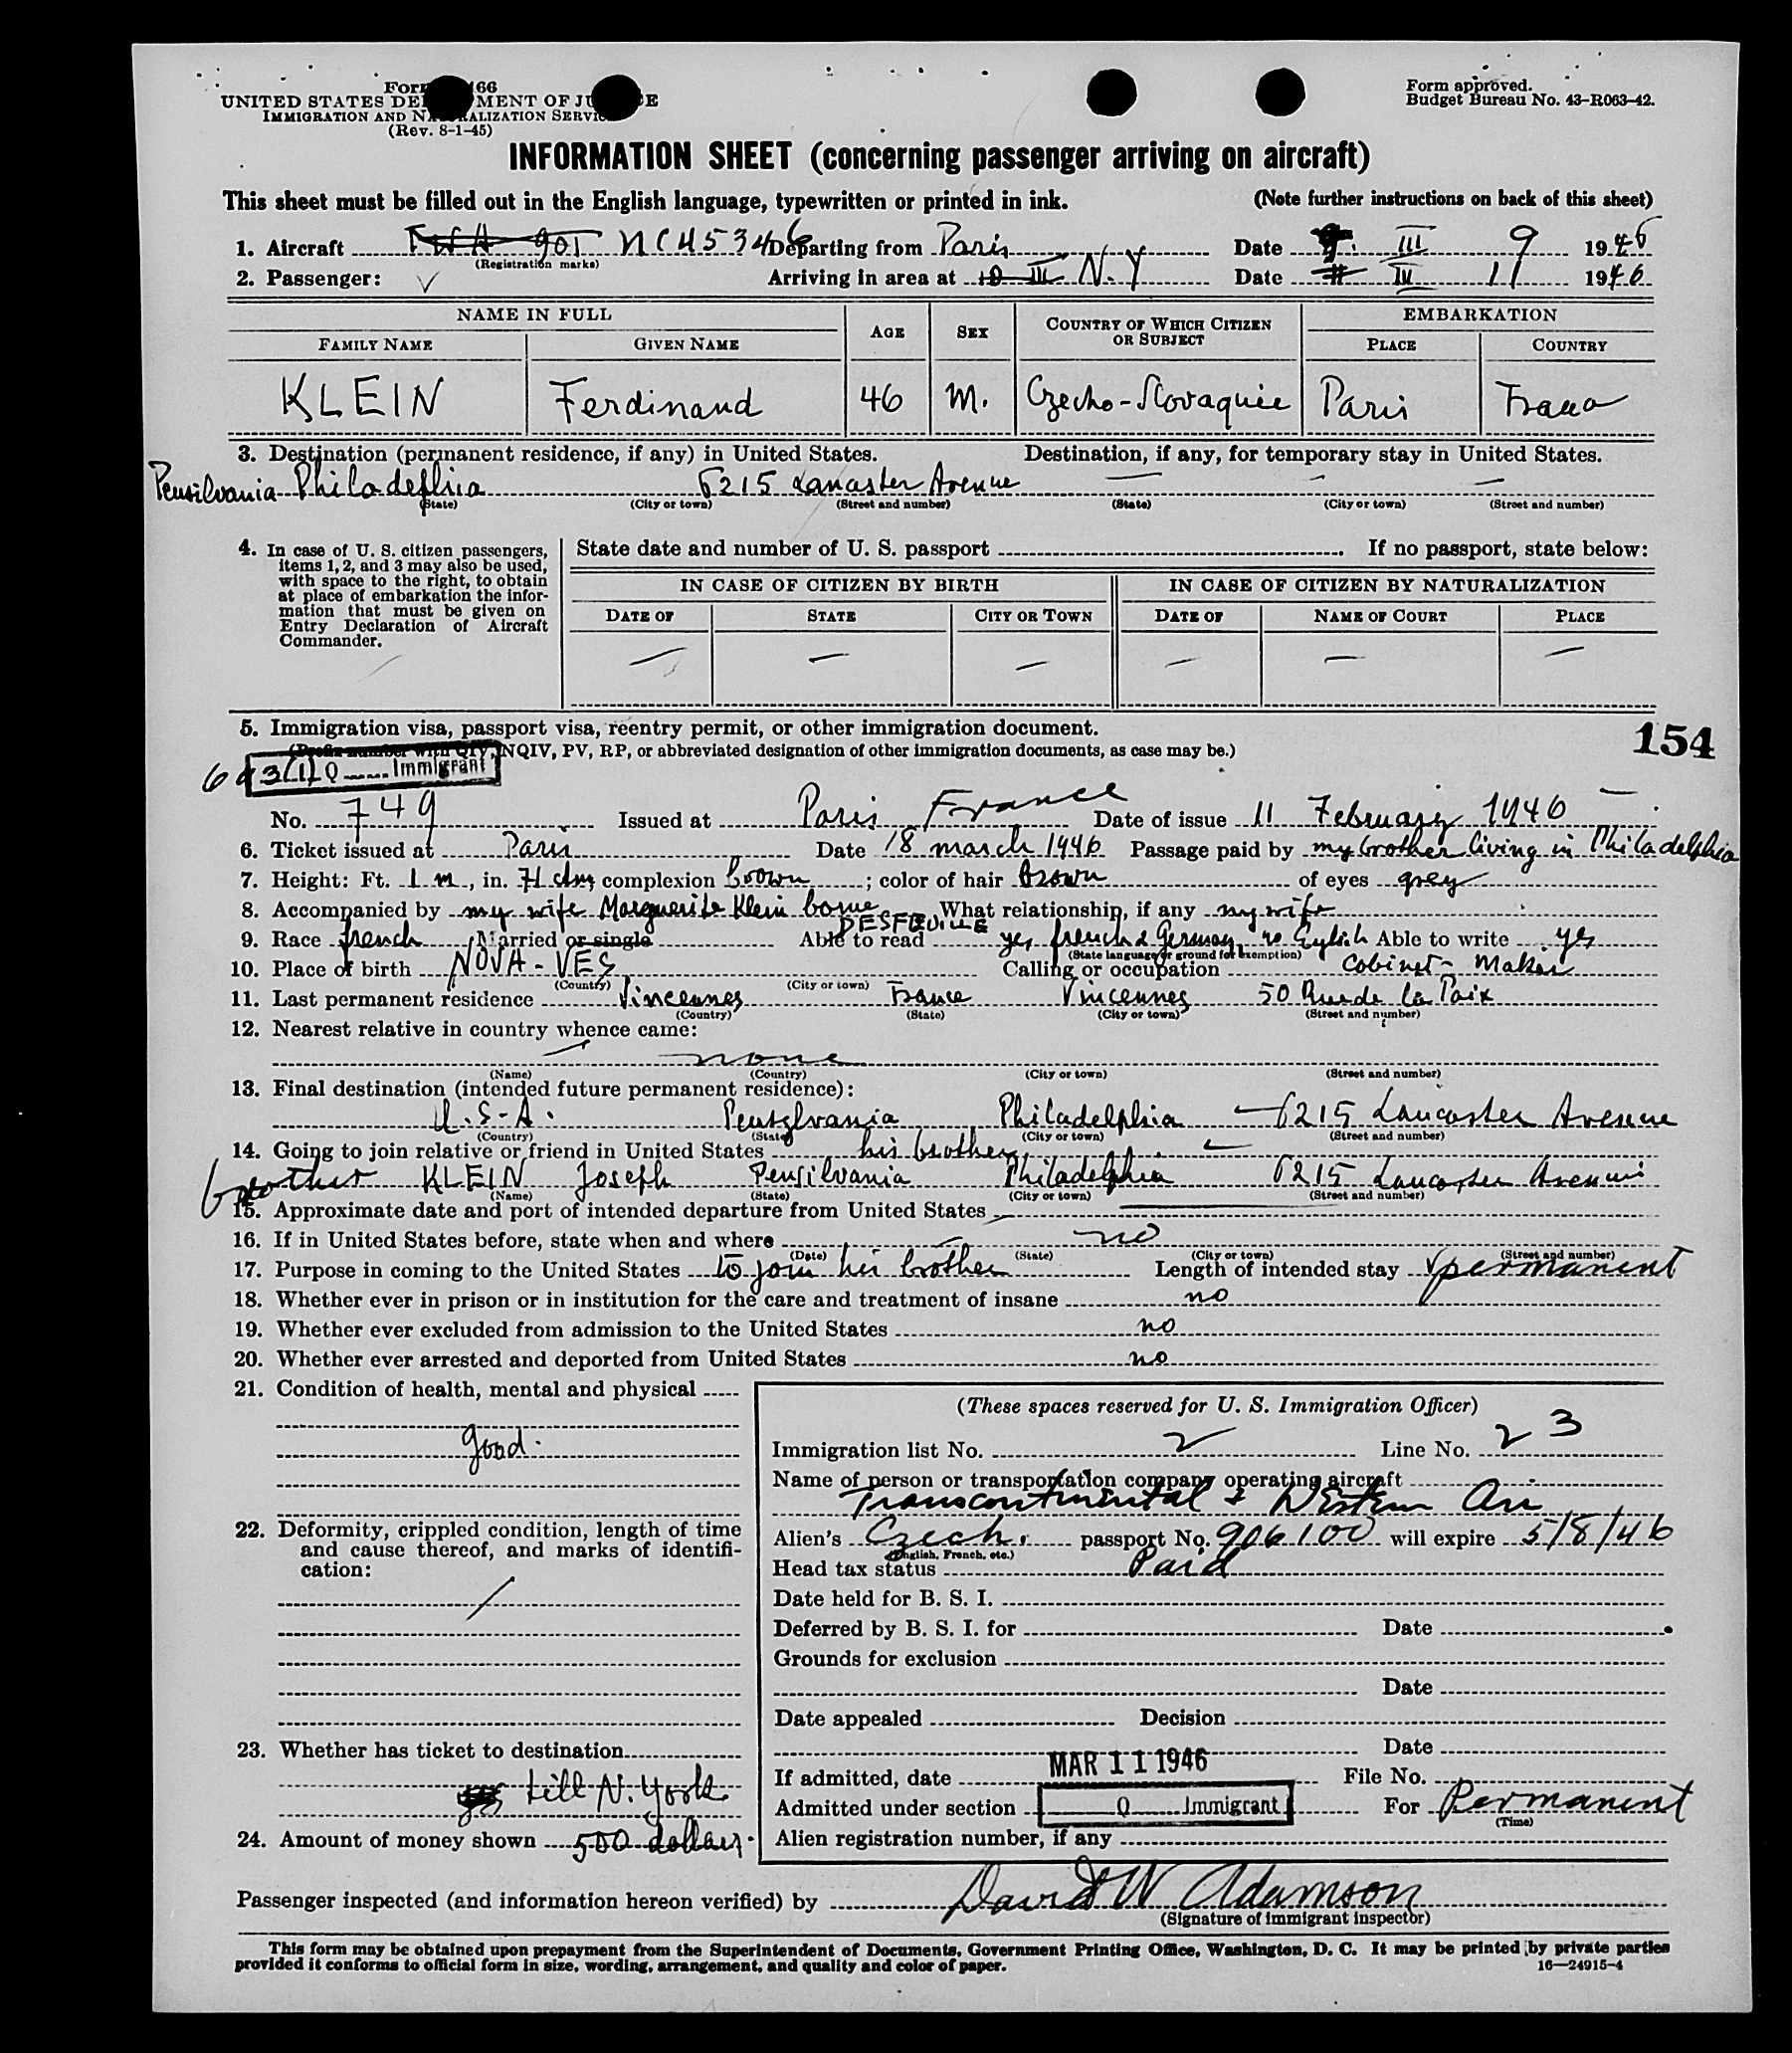 Form 66
UNITED STATES DE MENT OF JU E
IMMIGRATION AND N ALIZATION SERVIC
(Rev. 8-1-45)
Form approved.
Budget Bureau No. 43-R063-42.
INFORMATION SHEET (concerning passenger arriving on aircraft)
This sheet must be filled out in the English language, typewritten or printed in ink. (Note further instructions on back of this sheet)
1. Aircraft TWA 901 NC45346 Departing from Paris Date III 9 1946
(Registration marks)
2. Passenger: Arriving in area at 10 III N.Y Date III 11 1946
NAME IN FULL AGE SEX COUNTRY OF WHICH CITIZEN OR SUBJECT EMBARKATION
FAMILY NAME GIVEN NAME PLACE COUNTRY
KLEIN Ferdinand 46 M. Czecho-Slovaquie Paris France
3. Destination (permanent residence, if any) in United States. Destination, if any, for temporary stay in United States.
Pensilvania Philadelphia 6215 Lancaster Avenue — — —
(State) (City or town) (Street and number) (State) (City or town) (Street and number)
4. In case of U. S. citizen passengers, items 1, 2, and 3 may also be used, with space to the right, to obtain at place of embarkation the information that must be given on Entry Declaration of Aircraft Commander.
State date and number of U. S. passport . If no passport, state below:
IN CASE OF CITIZEN BY BIRTH IN CASE OF CITIZEN BY NATURALIZATION
DATE OF STATE CITY OR TOWN DATE OF NAME OF COURT PLACE
— — — — — —
5. Immigration visa, passport visa, reentry permit, or other immigration document.
(Prefix number with QIV, NQIV, PV, RP, or abbreviated designation of other immigration documents, as case may be.)
154
6a3(1) Q Immigrant
No. 749 Issued at Paris France Date of issue 11 February 1946
6. Ticket issued at Paris Date 18 march 1946 Passage paid by my brother living in Philadelphia
7. Height: Ft. 1 m, in. 71 ctm, complexion brown; color of hair Brown of eyes grey
8. Accompanied by my wife Marguerite Klein borne DESFEUILLE What relationship, if any my wife
9. Race french Married or single Able to read yes french & German, no English Able to write yes
(State language or ground for exemption)
10. Place of birth NOVA-VES Calling or occupation Cabinet-Maker
(Country) (City or town)
11. Last permanent residence Vincennes France Vincennes 50 Rue de la Paix
(Country) (State) (City or town) (Street and number)
12. Nearest relative in country whence came:
none
(Name) (Country) (City or town) (Street and number)
13. Final destination (intended future permanent residence):
U.S-A. Pensylvania Philadelphia — 6215 Lancaster Avenue
(Country) (State) (City or town) (Street and number)
14. Going to join relative or friend in United States his brother
brother KLEIN Joseph Pensilvania Philadelphia 6215 Lancaster Avenue
(Name) (State) (City or town) (Street and number)
15. Approximate date and port of intended departure from United States —
16. If in United States before, state when and where no
(Date) (State) (City or town) (Street and number)
17. Purpose in coming to the United States to join his brother Length of intended stay permanent
18. Whether ever in prison or in institution for the care and treatment of insane no
19. Whether ever excluded from admission to the United States no
20. Whether ever arrested and deported from United States no
21. Condition of health, mental and physical
good.
22. Deformity, crippled condition, length of time and cause thereof, and marks of identification:
/
23. Whether has ticket to destination
till N. York
24. Amount of money shown 500 dollars.
(These spaces reserved for U. S. Immigration Officer)
Immigration list No. 2 Line No. 23
Name of person or transportation company operating aircraft
Transcontinental & Western Air
Alien's Czech. passport No. 906100 will expire 5/8/46
(English, French, etc.)
Head tax status Paid
Date held for B. S. I.
Deferred by B. S. I. for Date
Grounds for exclusion
Date
Date appealed Decision
Date
If admitted, date MAR 11 1946 File No.
Admitted under section Q Immigrant For Permanent
(Time)
Alien registration number, if any
Passenger inspected (and information hereon verified) by David W Adamson
(Signature of immigrant inspector)
This form may be obtained upon prepayment from the Superintendent of Documents, Government Printing Office, Washington, D. C. It may be printed by private parties
provided it conforms to official form in size, wording, arrangement, and quality and color of paper. 16—24915-4